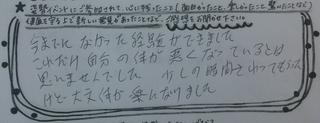 ★当塾イベントにご参加されて、心に残ったこと（面白かったこと、楽しかったこと、驚いたことなど）
健康を守る上で新しい発見があったことなど、ご感想をお聞かせ下さい
今までになかった経験ができました
これだけ自分の体が悪くなっているとは
思いませんでした 少しの時間さわってもらった
けど大丈体が楽になりました